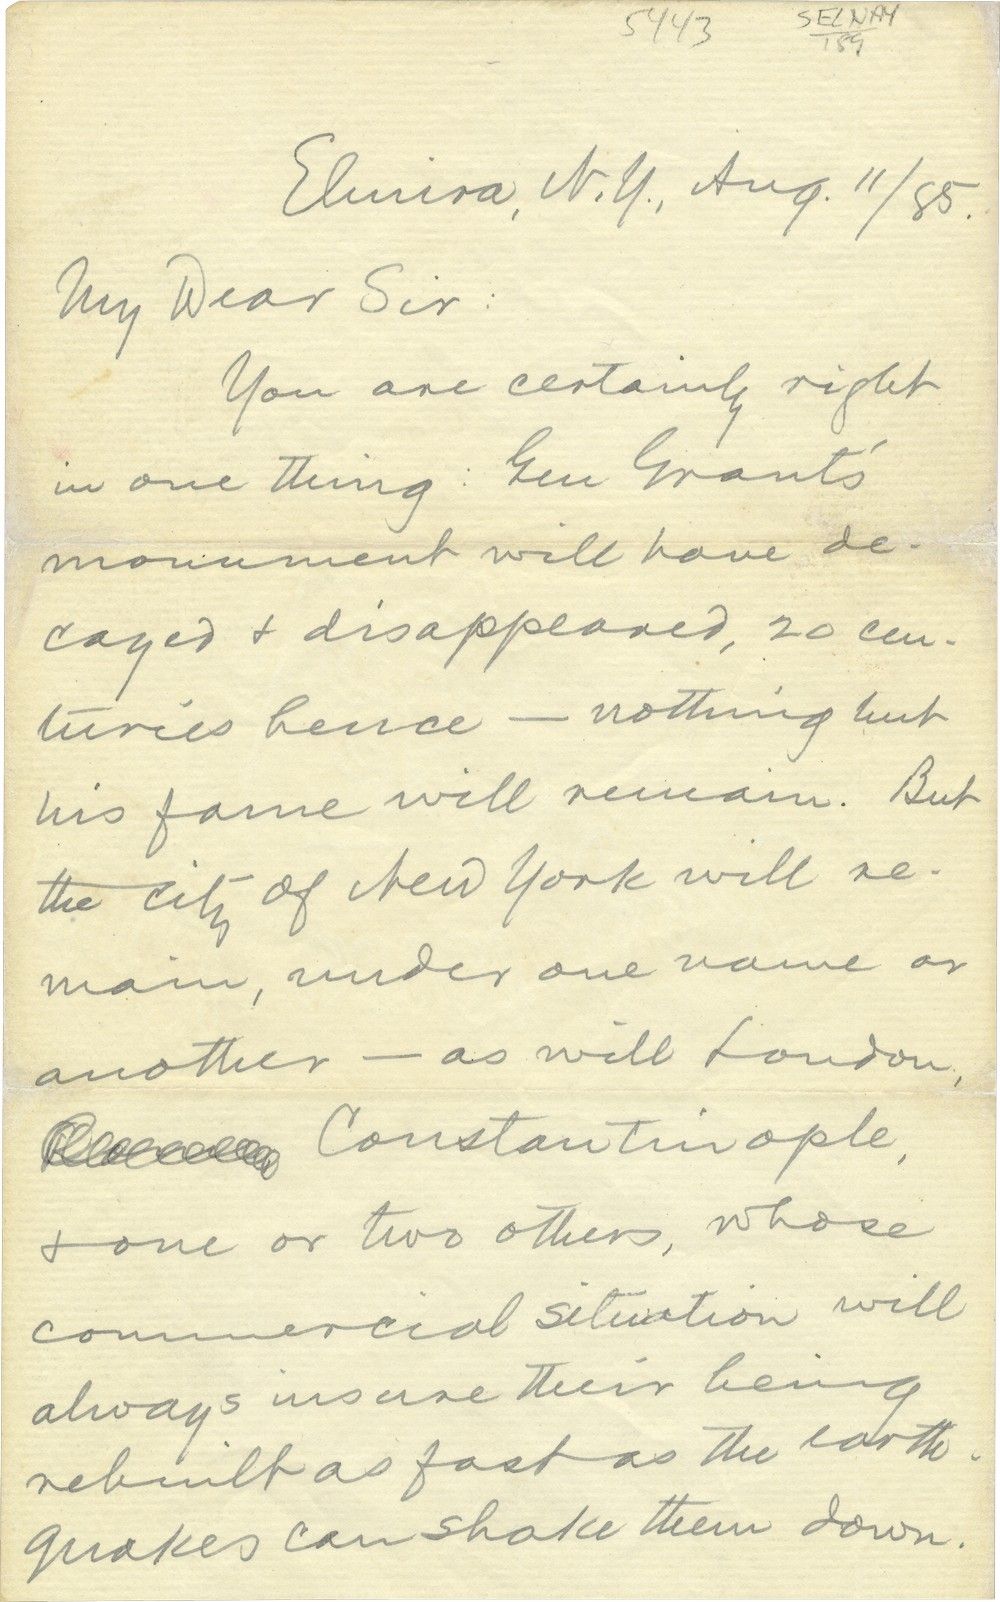 5443 SELNAY
189
Elmira, N.Y., Aug. 11/85.
My Dear Sir:
You are certainly right
in one thing: Gen Grant's
monument will have de-
cayed & disappeared, 20 cen-
turies hence — nothing but
his fame will remain. But
the city of New York will re-
main, under one name or
another — as will London,
Constantinople,
& one or two others, whose
commercial situation will
always insure their being
rebuilt as fast as the earth-
quakes can shake them down.